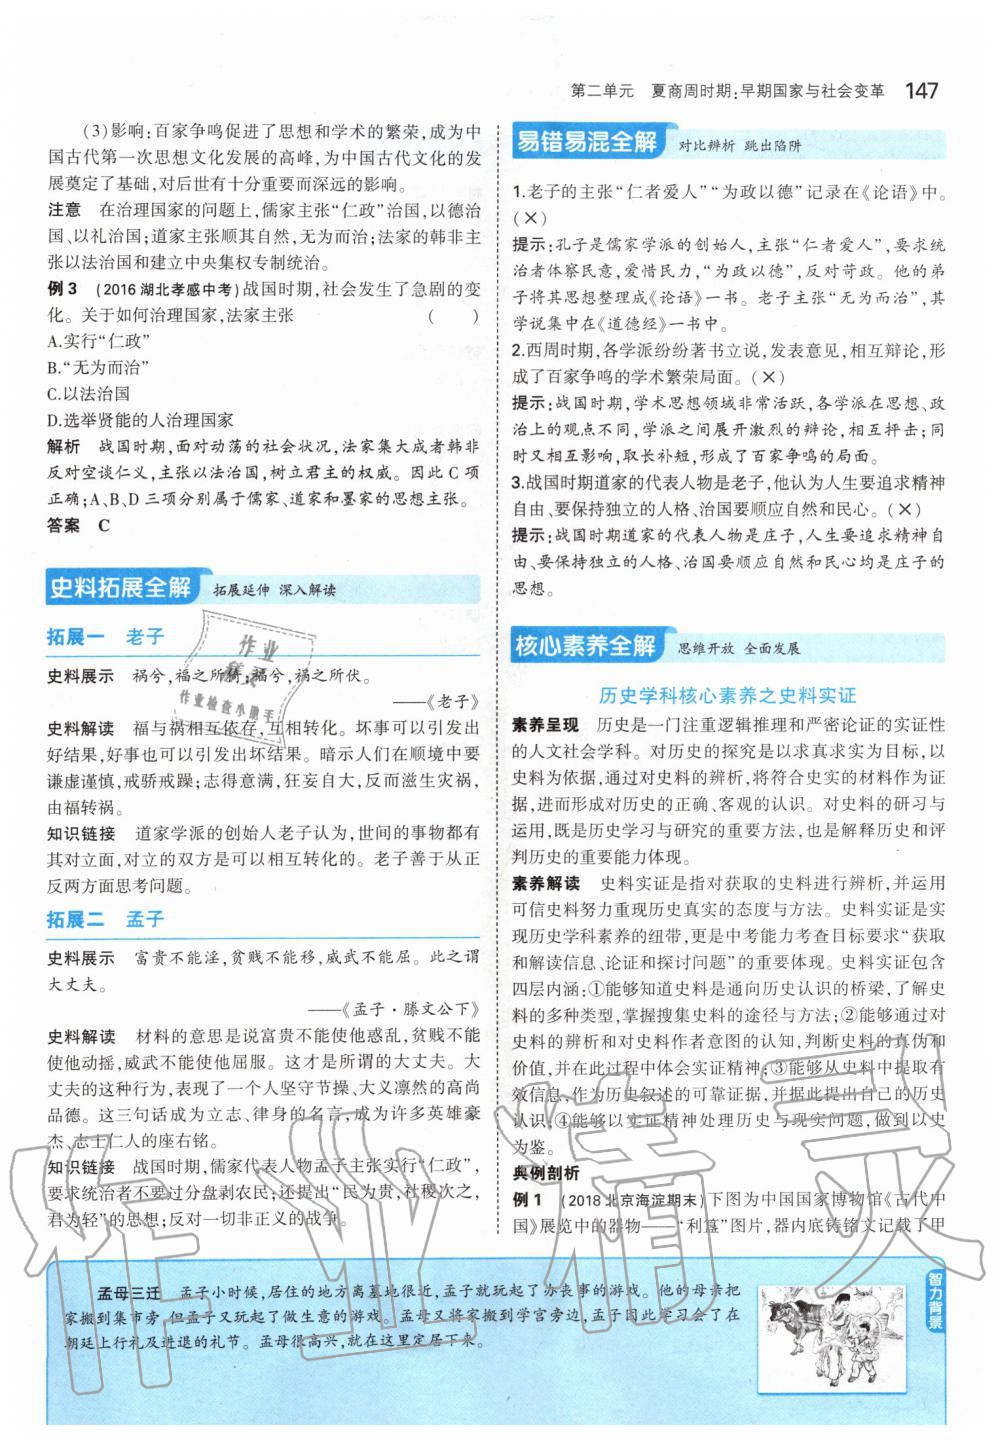 第二单元 夏商周时期:早期国家与社会变革 147
(3)影响:百家争鸣促进了思想和学术的繁荣,成为中
国古代第一次思想文化发展的高峰,为中国古代文化的发
展奠定了基础,对后世有十分重要而深远的影响。
注意 在治理国家的问题上,儒家主张“仁政”治国,以德治
国、以礼治国;道家主张顺其自然,无为而治;法家的韩非主
张以法治国和建立中央集权专制统治。
例3 (2016湖北孝感中考)战国时期,社会发生了急剧的变
化。关于如何治理国家,法家主张 ( )
A.实行“仁政”
B.“无为而治”
C.以法治国
D.选举贤能的人治理国家
解析 战国时期,面对动荡的社会状况,法家集大成者韩非
反对空谈仁义,主张以法治国,树立君主的权威。因此C项
正确;A、B、D三项分别属于儒家、道家和墨家的思想主张。
答案 C
史料拓展全解 拓展延伸 深入解读
拓展一 老子
史料展示 祸兮,福之所倚;福兮,祸之所伏。
——《老子》
史料解读 福与祸相互依存,互相转化。坏事可以引发出
好结果,好事也可以引发出坏结果。暗示人们在顺境中要
谦虚谨慎,戒骄戒躁;志得意满,狂妄自大,反而滋生灾祸,
由福转祸。
知识链接 道家学派的创始人老子认为,世间的事物都有
其对立面,对立的双方是可以相互转化的。老子善于从正
反两方面思考问题。
拓展二 孟子
史料展示 富贵不能淫,贫贱不能移,威武不能屈。此之谓
大丈夫。
——《孟子·滕文公下》
史料解读 材料的意思是说富贵不能使他惑乱,贫贱不能
使他动摇,威武不能使他屈服。这才是所谓的大丈夫。大
丈夫的这种行为,表现了一个人坚守节操、大义凛然的高尚
品德。这三句话成为立志、律身的名言,成为许多英雄豪
杰、志士仁人的座右铭。
知识链接 战国时期,儒家代表人物孟子主张实行“仁政”,
要求统治者不要过分盘剥农民;还提出“民为贵,社稷次之,
君为轻”的思想;反对一切非正义的战争。
易错易混全解 对比辨析 跳出陷阱
1.老子的主张“仁者爱人”“为政以德”记录在《论语》中。
(×)
提示:孔子是儒家学派的创始人,主张“仁者爱人”,要求统
治者体察民意,爱惜民力,“为政以德”,反对苛政。他的弟
子将其思想整理成《论语》一书。老子主张“无为而治”,其
学说集中在《道德经》一书中。
2.西周时期,各学派纷纷著书立说,发表意见,相互辩论,形
成了百家争鸣的学术繁荣局面。(×)
提示:战国时期,学术思想领域非常活跃,各学派在思想、政
治上的观点不同,学派之间展开激烈的辩论,相互抨击;同
时又相互影响,取长补短,形成了百家争鸣的局面。
3.战国时期道家的代表人物是老子,他认为人生要追求精神
自由、要保持独立的人格、治国要顺应自然和民心。(×)
提示:战国时期道家的代表人物是庄子,人生要追求精神自
由、要保持独立的人格、治国要顺应自然和民心均是庄子的
思想。
核心素养全解 思维开放 全面发展
历史学科核心素养之史料实证
素养呈现 历史是一门注重逻辑推理和严密论证的实证性
的人文社会学科。对历史的探究是以求真求实为目标,以
史料为依据,通过对史料的辨析,将符合史实的材料作为证
据,进而形成对历史的正确、客观的认识。对史料的研习与
运用,既是历史学习与研究的重要方法,也是解释历史和评
判历史的重要能力体现。
素养解读 史料实证是指对获取的史料进行辨析,并运用
可信史料努力重现历史真实的态度与方法。史料实证是实
现历史学科素养的纽带,更是中考能力考查目标要求“获取
和解读信息、论证和探讨问题”的重要体现。史料实证包含
四层内涵:①能够知道史料是通向历史认识的桥梁,了解史
料的多种类型,掌握搜集史料的途径与方法;②能够通过对
史料的辨析和对史料作者意图的认知,判断史料的真伪和
价值,并在此过程中体会实证精神;③能够从史料中提取有
效信息,作为历史叙述的可靠证据,并据此提出自己的历史
认识;④能够以实证精神处理历史与现实问题,做到以史
为鉴。
典例剖析
例1 (2018北京海淀期末)下图为中国国家博物馆《古代中
国》展览中的器物——“利簋”图片,器内底铸铭文记载了甲
孟母三迁 孟子小时候,居住的地方离墓地很近,孟子就玩起了办丧事的游戏。他的母亲把
家搬到集市旁,但孟子又玩起了做生意的游戏。孟母又将家搬到学宫旁边,孟子因此学习会了在
朝廷上行礼及进退的礼节。孟母很高兴,就在这里定居下来。
智力背景
作业
精灵
作业检查小助手
作业精灵